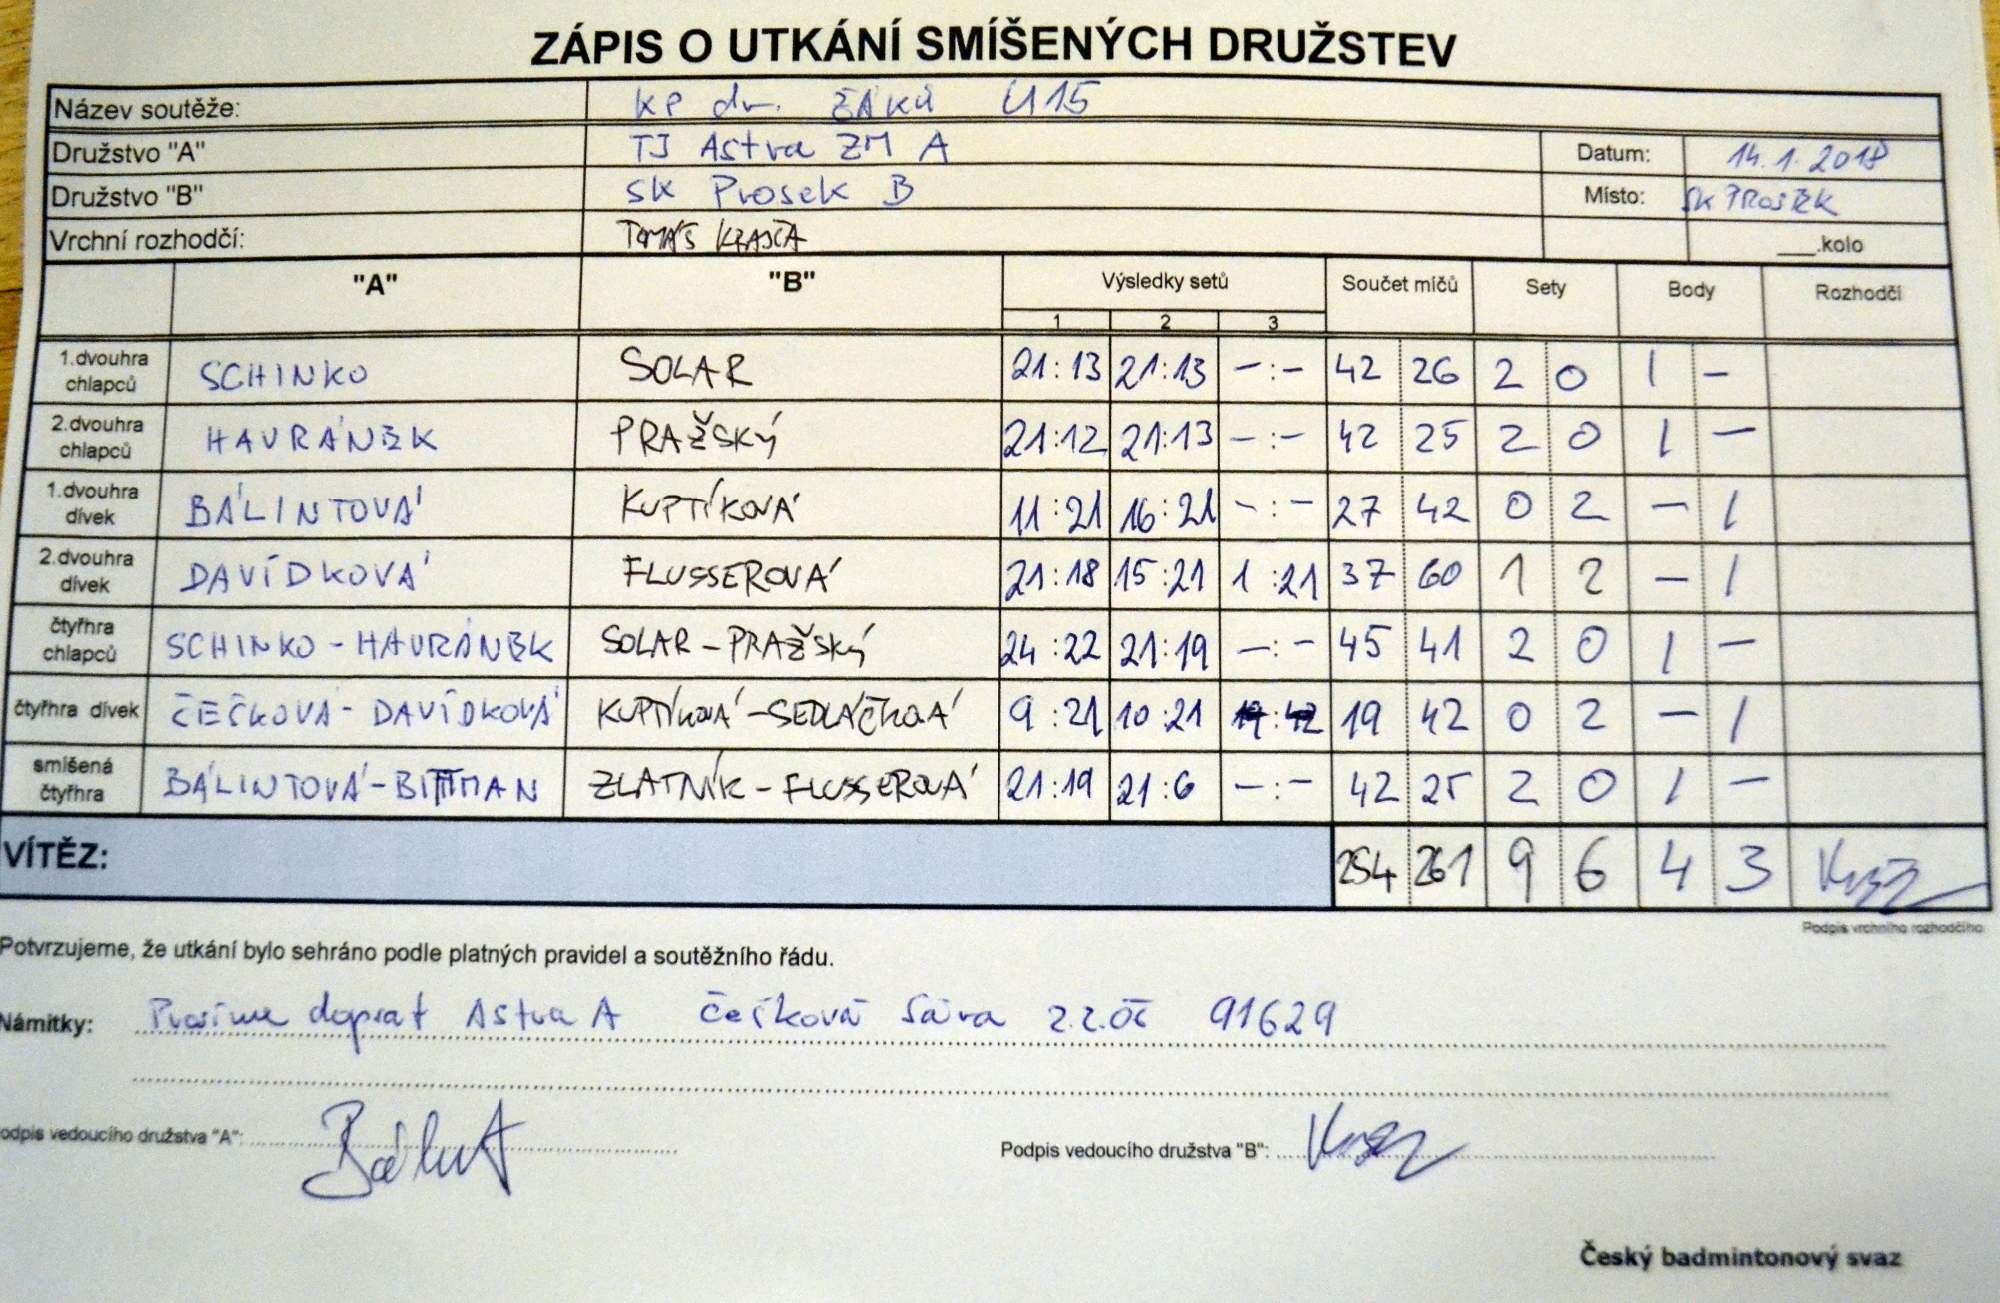 ZÁPIS O UTKÁNÍ SMÍŠENÝCH DRUŽSTEV
Název soutěže: KP dr. ŽÁKŮ U15
Družstvo "A" TJ Astra ZM A Datum: 14.1.2018
Družstvo "B" SK Prosek B Místo: SK PROSEK
Vrchní rozhodčí: TOMÁŠ KRAJČA ___.kolo
"A" "B" Výsledky setů Součet míčů Sety Body Rozhodčí
1 2 3
1.dvouhra chlapců SCHINKO SOLAR 21:13 21:13 -:- 42 26 2 0 1 -
2.dvouhra chlapců HAVRÁNEK PRAŽSKÝ 21:12 21:13 -:- 42 25 2 0 1 -
1.dvouhra dívek BÁLINTOVÁ KUPTÍKOVÁ 11:21 16:21 -:- 27 42 0 2 - 1
2.dvouhra dívek DAVÍDKOVÁ FLUSSEROVÁ 21:18 15:21 1:21 37 60 1 2 - 1
čtyřhra chlapců SCHINKO-HAVRÁNEK SOLAR-PRAŽSKÝ 24:22 21:19 -:- 45 41 2 0 1 -
čtyřhra dívek ČEČKOVÁ-DAVÍDKOVÁ KUPTÍKOVÁ-SEDLÁČKOVÁ 9:21 10:21 19:42 19 42 0 2 - 1
smíšená čtyřhra BÁLINTOVÁ-BITTMAN ZLATNÍK-FLUSSEROVÁ 21:19 21:6 -:- 42 25 2 0 1 -
VÍTĚZ: 254 261 9 6 4 3
Podpis vrchního rozhodčího
Potvrzujeme, že utkání bylo sehráno podle platných pravidel a soutěžního řádu.
Námitky: Prosíme dopsat Astra A Čečková Sára 2.2.05 91629
odpis vedoucího družstva "A": Podpis vedoucího družstva "B":
Český badmintonový svaz